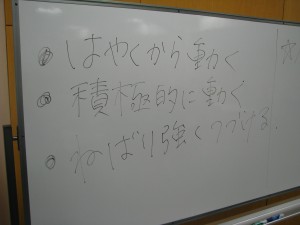 はやくから動く
積極的に動く
ねばり強くつづける